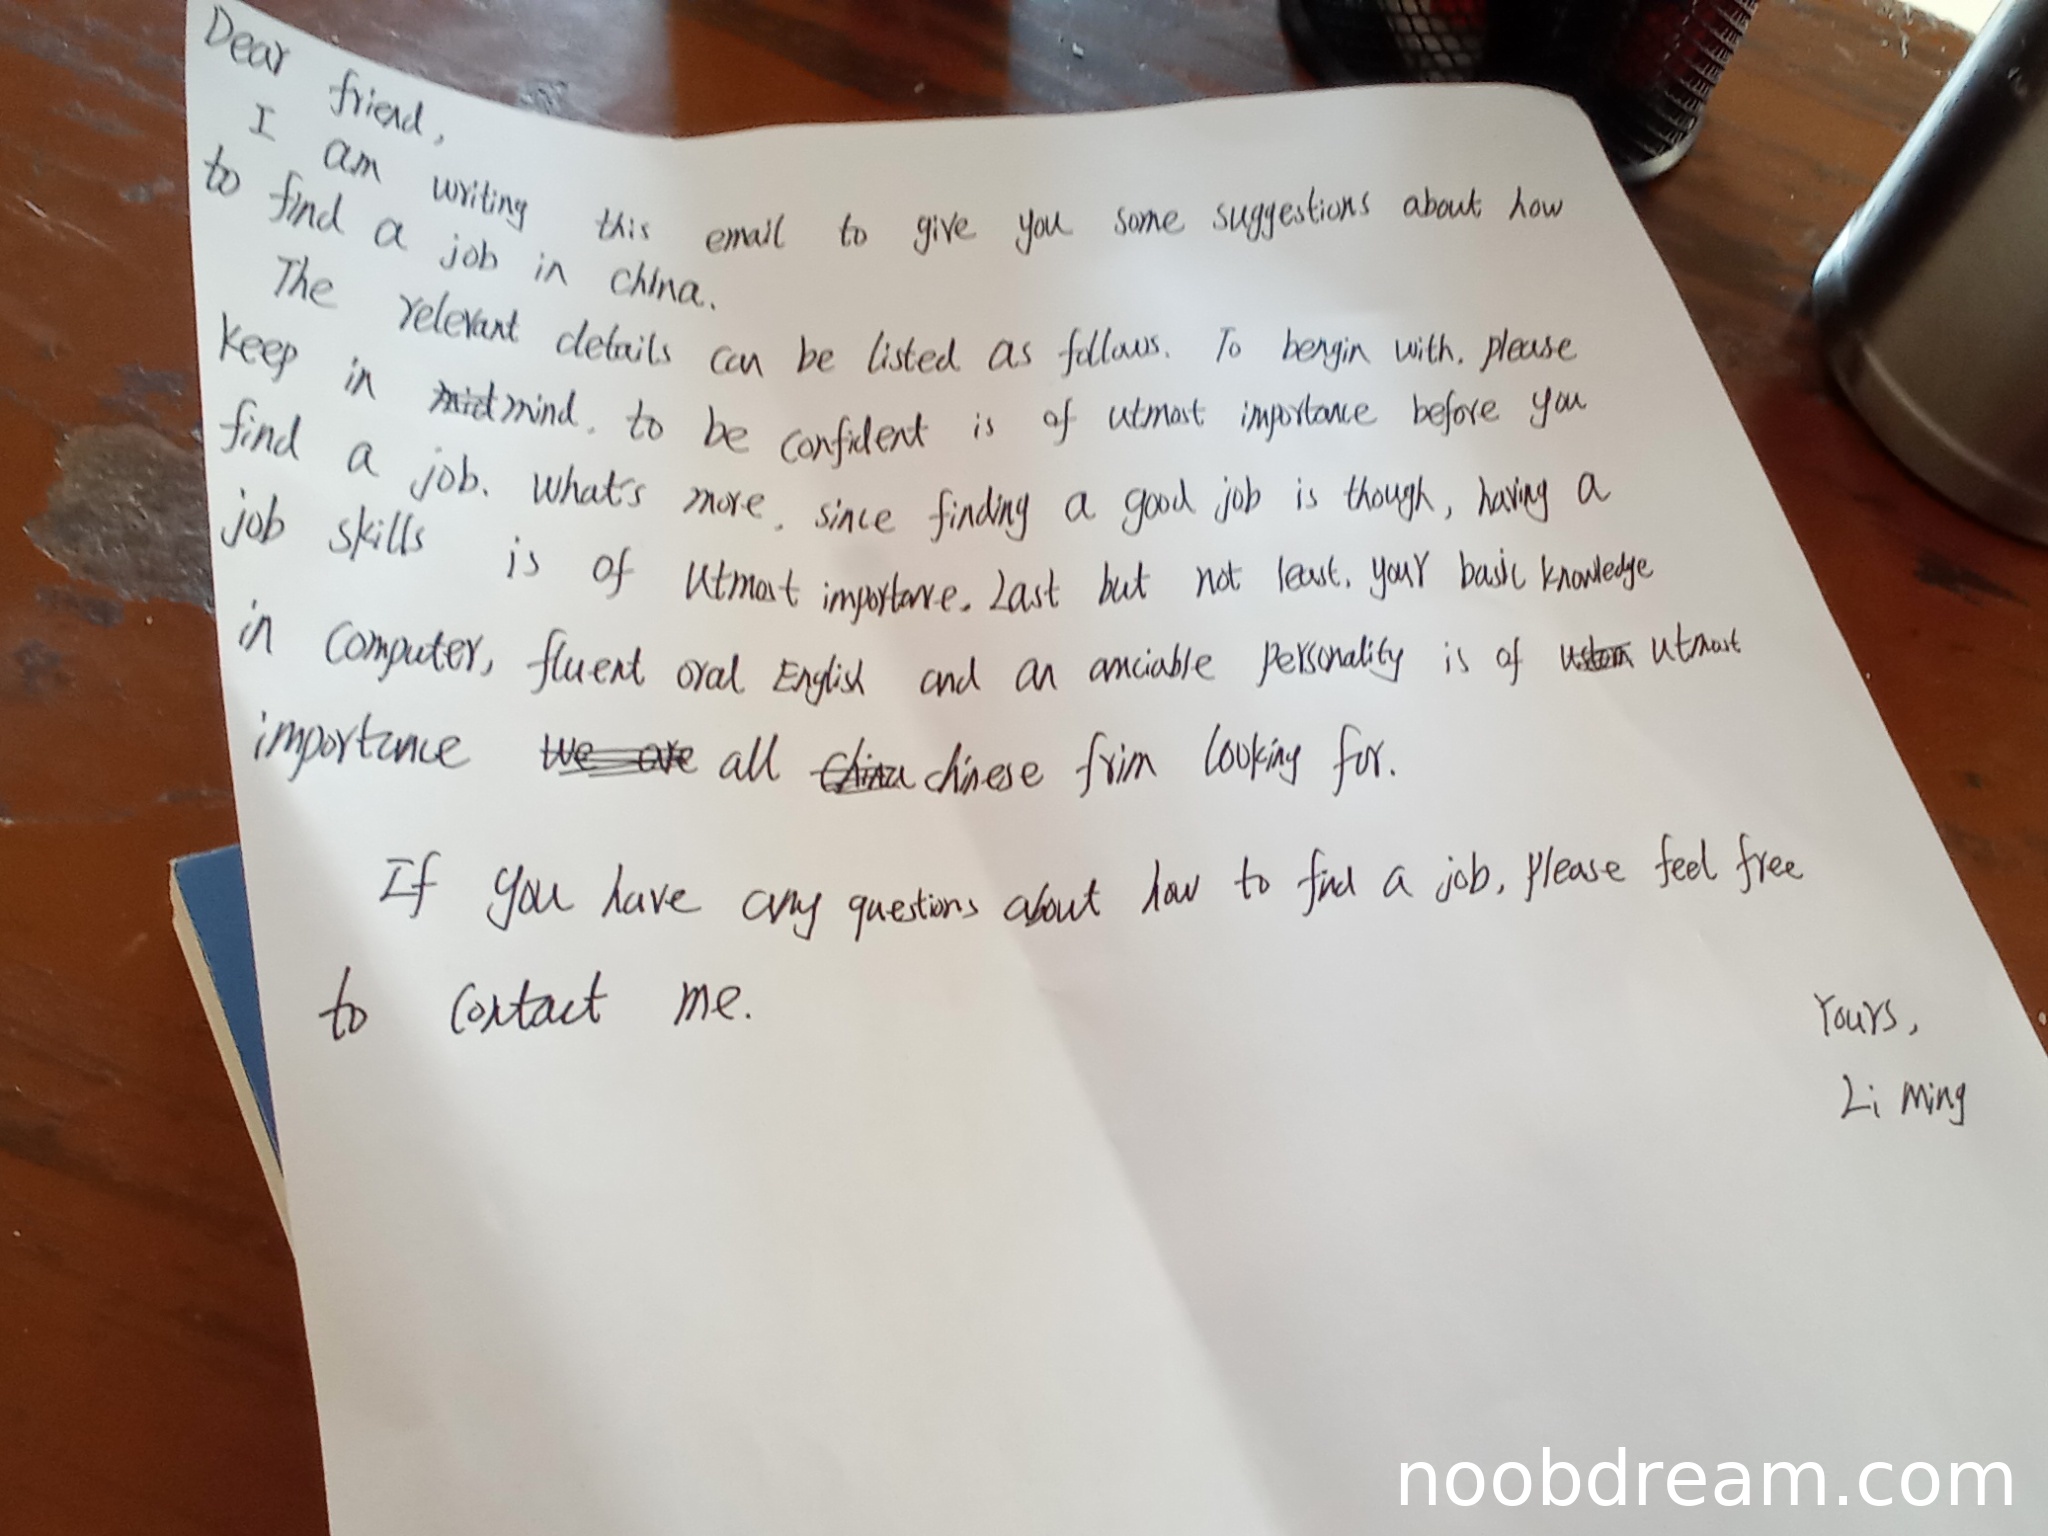 Dear friend,
I am writing this email to give you some suggestions about how
to find a job in china.
The relevant details can be listed as follows. To bergin with, please
keep in mind, to be confident is of utmost importance before you
find a job. what's more, since finding a good job is though, having a
job skills is of utmost importance. Last but not least, your basic knowledge
in computer, fluent oral English and an amciable personality is of utmost
importance all chinese frim looking for.
If you have any questions about how to find a job, please feel free
to contact me.
Yours,
Li Ming
noobdream.com